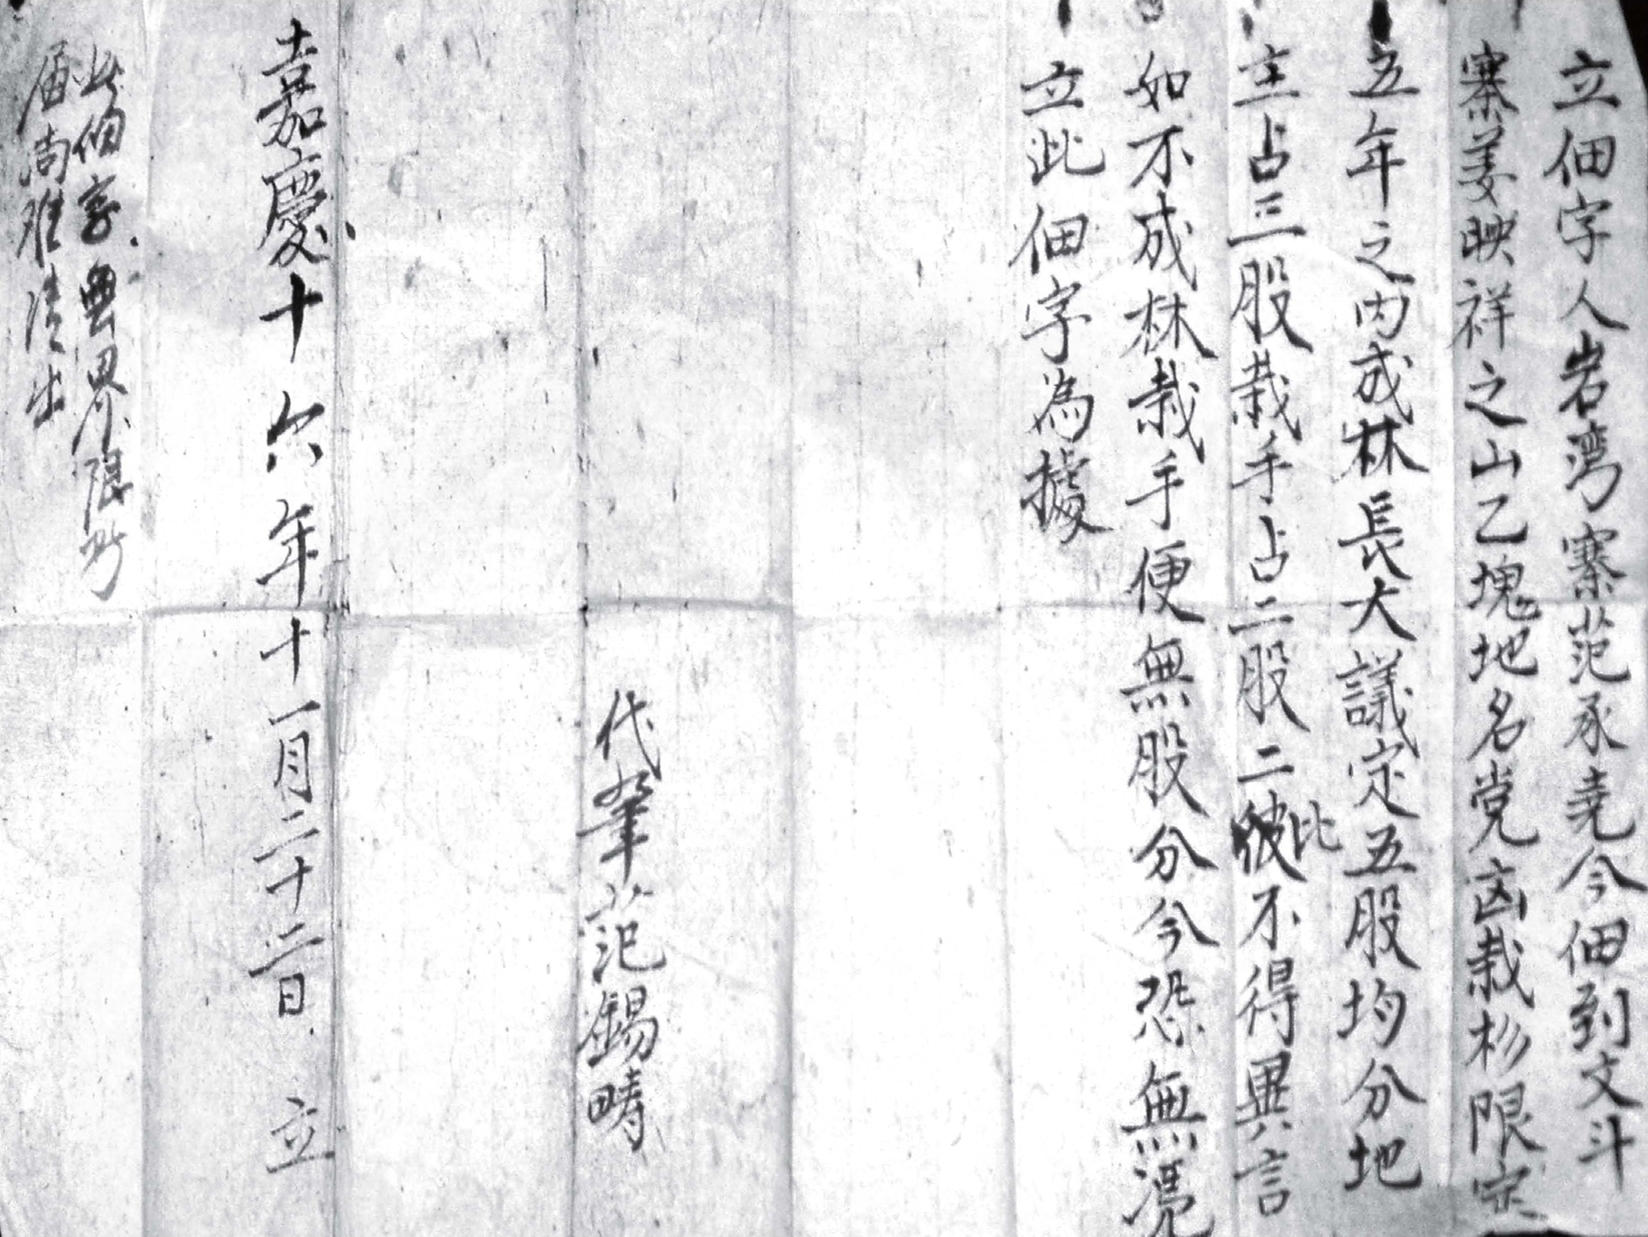 立佃字人岩湾寨范承尭今佃到文斗
寨姜映祥之山乙塊地名党凶栽杉限定
五年之内成林長大議定五股均分地
主占三股栽手占二股二彼此不得異言
如不成林栽手便無股分今恐無凴
立此佃字為據
代筆范錫疇
嘉慶十六年十一月二十二日立
此佃字無界限
届尚难清出